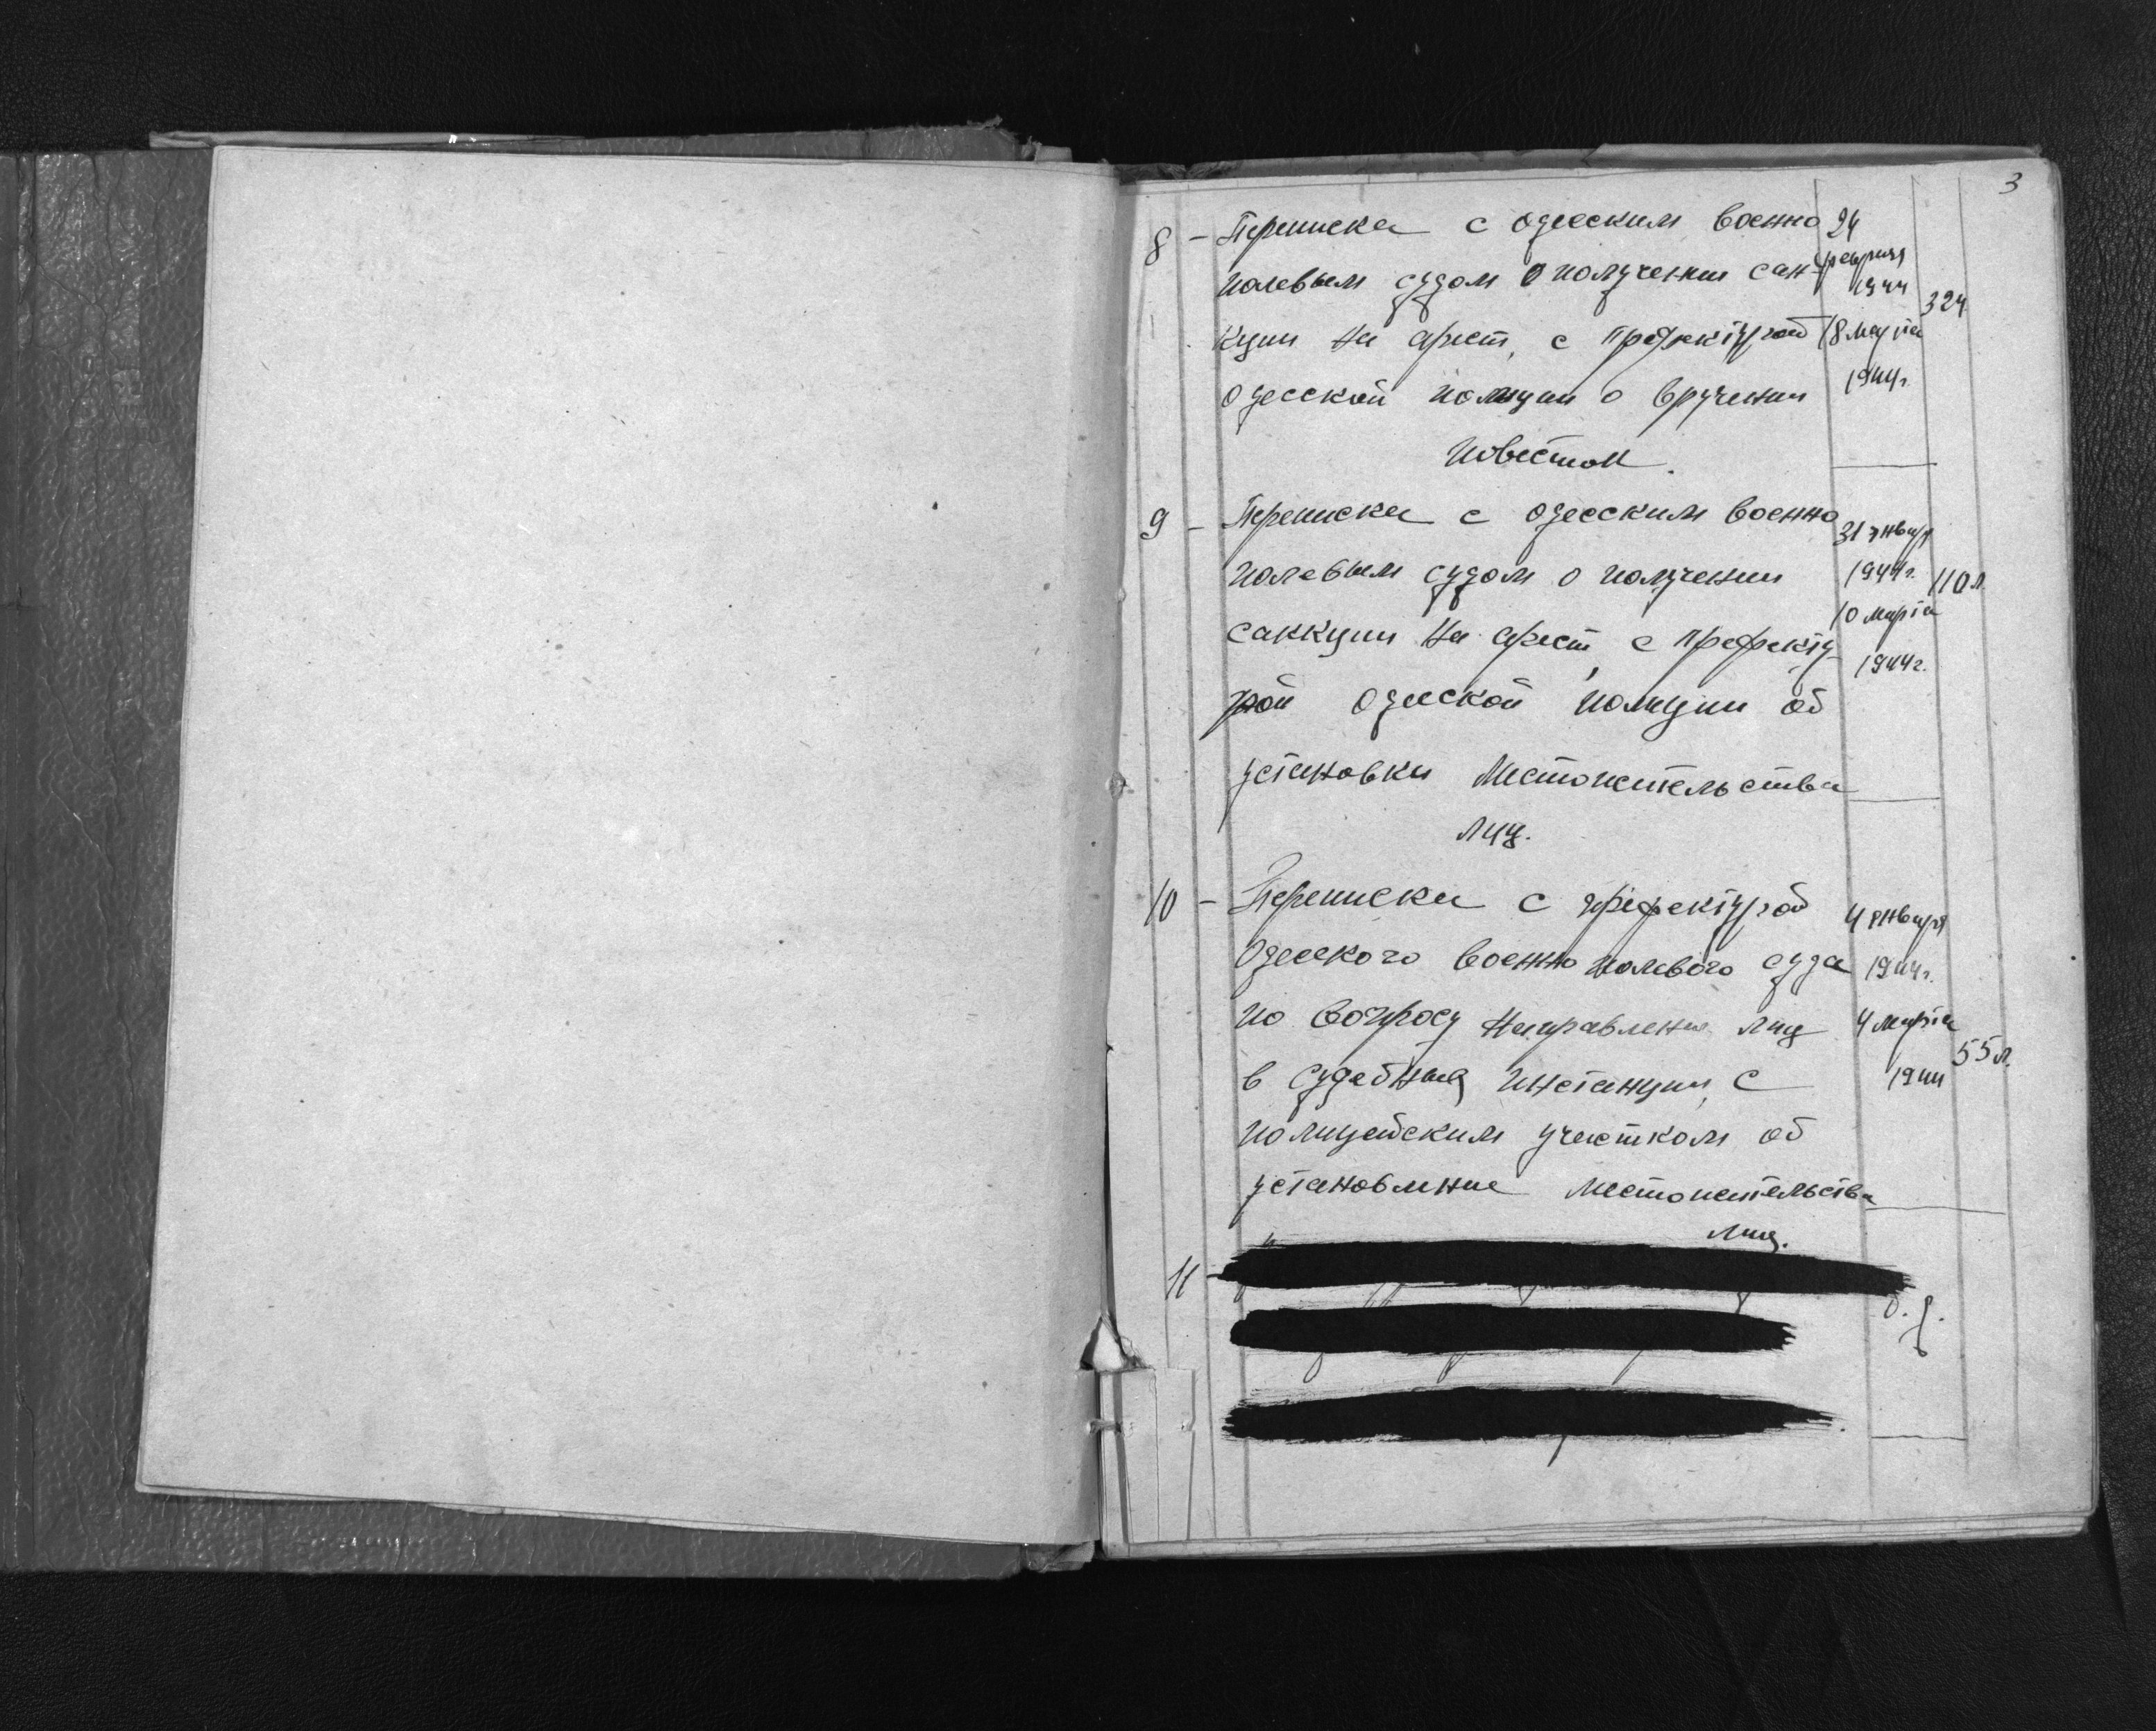 3
8 - Переписка с одесским военно 24
полевым судом о получении сан- февраля 1944 324
кции на арест, с префектурой 18 марта
одесской полиции о вручении 1944г.
повесток.
9 - Переписка с одесским военно 31 январ
полевым судом о получении 1944г. 110 л.
саккции на арест, с префекту- 10 марта
рой одесской полиции об 1944г.
установки местожительства
лиц.
10 - Переписка с префектурой 4 января
Одесского военно полевого суда 1944г.
по вопросу направления лиц 4 марта
в судебные инстанции, с 1944 55 л.
полицейским участком об
установление местожительства
лиц.
11 -